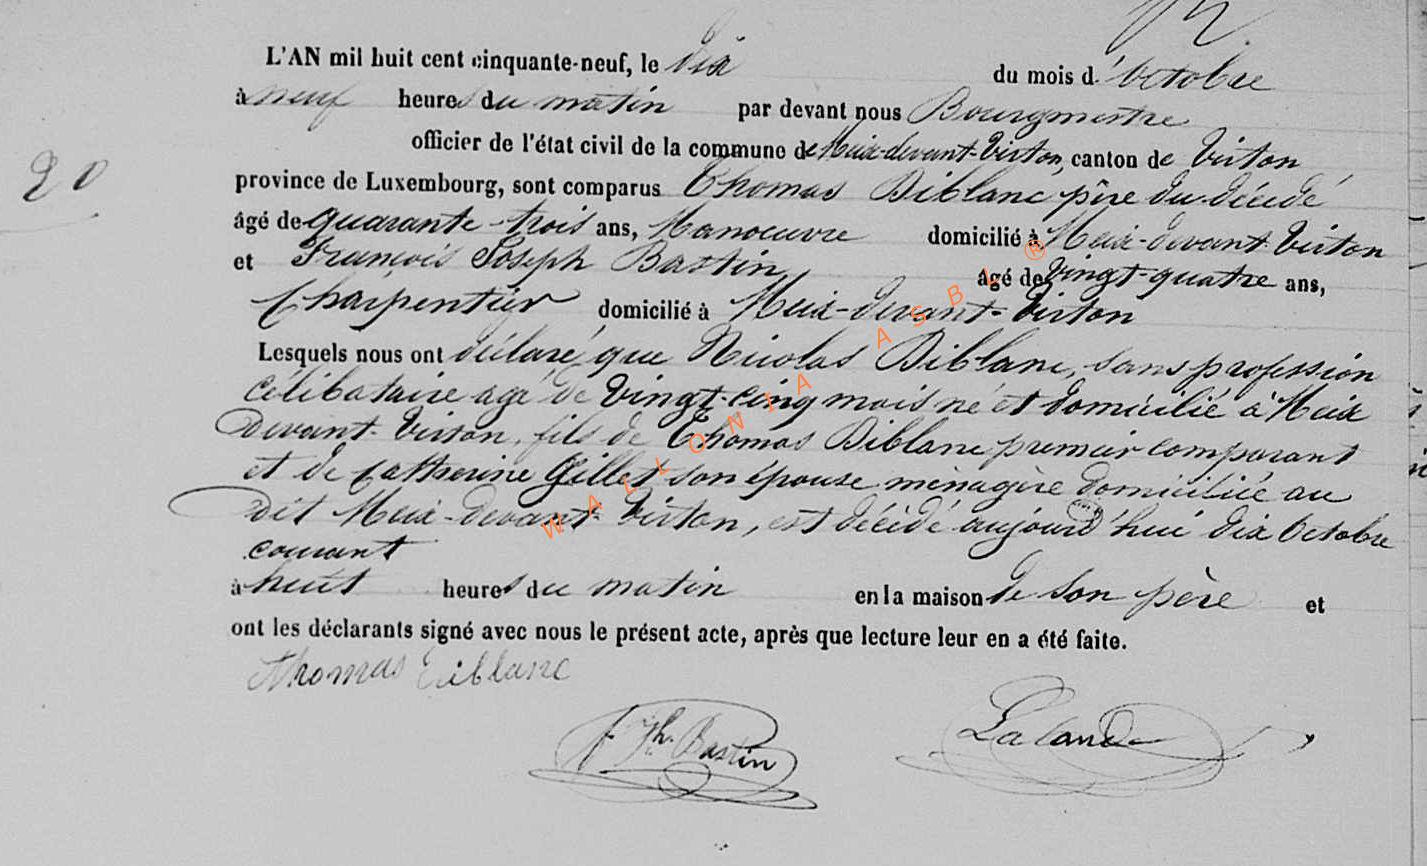 L'AN mil huit cent cinquante-neuf, le dix du mois d'Octobre
à neuf heures du matin par devant nous Bourgmestre
officier de l'état civil de la commune de Meix-devant-Virton, canton de Virton
20
province de Luxembourg, sont comparus Thomas Diblanc père du décédé
âgé de quarante-trois ans, Manoeuvre domicilié à Meix-devant-Virton
et François Joseph Bastin, âgé de vingt-quatre ans,
Charpentier domicilié à Meix-devant-Virton
Lesquels nous ont déclaré que Nicolas Diblanc, sans profession
célibataire agé de vingt-cinq mois né et domicilié à Meix
devant-Virton, fils de Thomas Diblanc premier comparant
et de Catherine Gillet son épouse ménagère domiciliée au
dit Meix-devant-Virton, est décédé aujourd'hui dix Octobre
courant
à huit heures du matin en la maison de son père et
ont les déclarants signé avec nous le présent acte, après que lecture leur en a été faite.
Thomas Diblanc
f. Jh. Bastin Lalande
WALLONIA ASBL ®